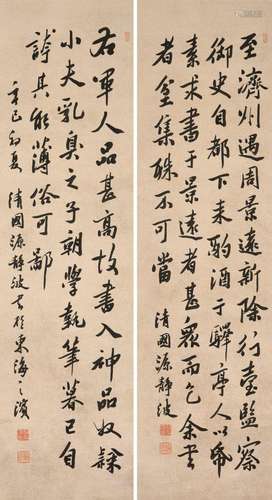 至濟州遇景遠新除行臺監察
御史自都下来酌酒于驛亭人以帋
素求書于景遠者甚衆而乞余書
者坌集殊不可當
清國源靜波
右軍人品甚高故書入神品奴隸
小夫乳臭之子朝學執筆暮已自
誇其能薄俗可鄙
辛巳初夏 清國源靜波書於東海之濱